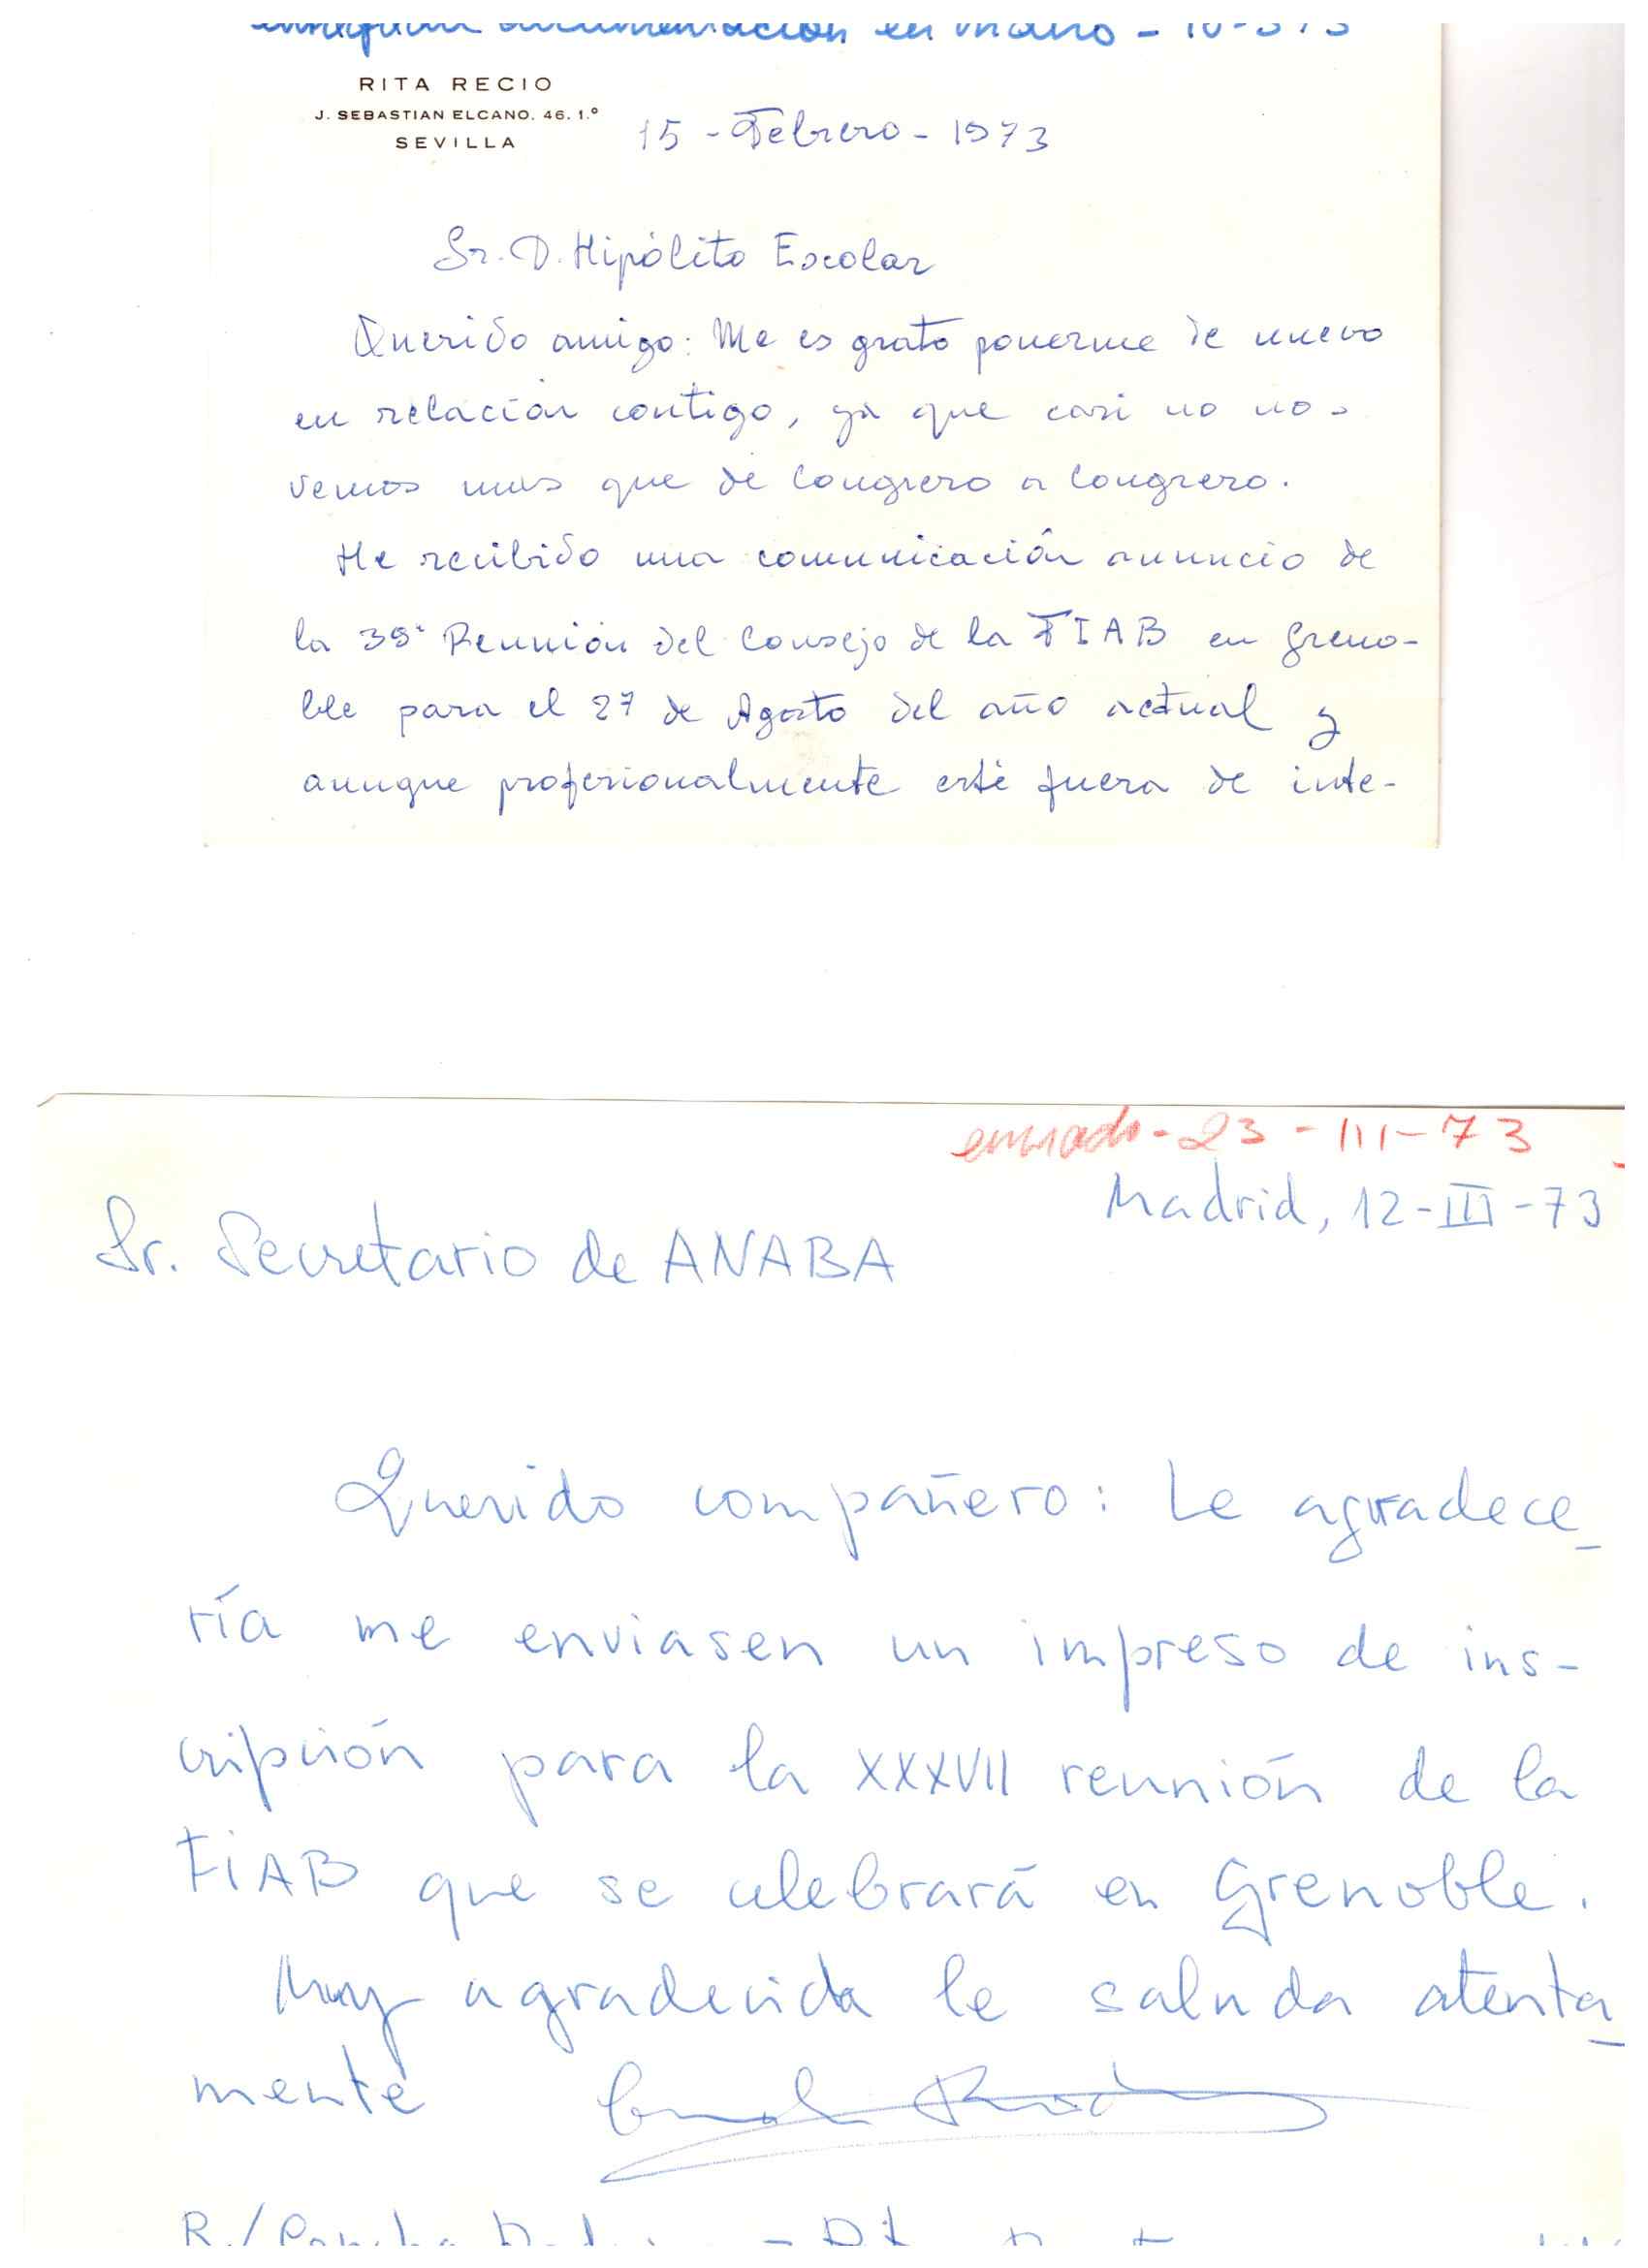 documentación en mano -
RITA RECIO
J. SEBASTIAN ELCANO, 46. 1.º
SEVILLA
15 - Febrero - 1973
Sr. D. Hipólito Escolar
Querido amigo: Me es grato ponerme de nuevo
en relación contigo, ya que casi no nos
vemos mas que de Congreso a Congreso.
He recibido una comunicación anuncio de
la 39ª Reunión del Consejo de la FIAB en Greno-
ble para el 27 de Agosto del año actual y
aunque profesionalmente esté fuera de inte-
enviado - 23 - III - 73
Madrid, 12-III-73
Sr. Secretario de ANABA
Querido compañero: Le agradece-
ría me enviasen un impreso de ins-
cripción para la XXXVII reunión de la
FIAB que se celebrará en Grenoble.
Muy agradecida le saluda atenta-
mente
R./